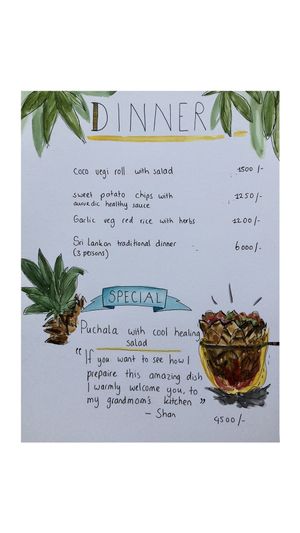 DINNER
coco vegi roll with salad 1500 /-
sweet potato chips with 1250/-
auvedic healthy sauce
Garlic veg red rice with herbs 1200/-
Sri Lankan traditional dinner 6000/-
(3 persons)
SPECIAL
Puchala with cool healing
salad
"If you want to see how I
prepaire this amazing dish
I warmly welcome you, to
my grandmom's kitchen"
- Shan
4500 /-